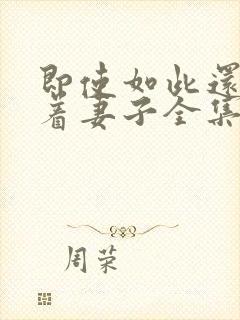 即使如此還
着妻子全集
周荣